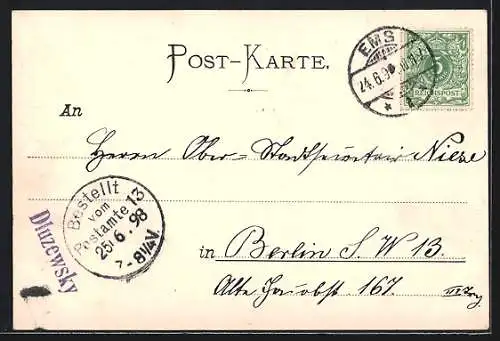 POST-KARTE.
EMS
24.6.98
5
REICHSPOST
An
Herrn Ober-Stadtsecretair Niese
Bestellt
vom
Postamte 13
25/6.98
7-8¼V.
Dluzewsky
in Berlin S. W 13.
Alte Jacobst 167.